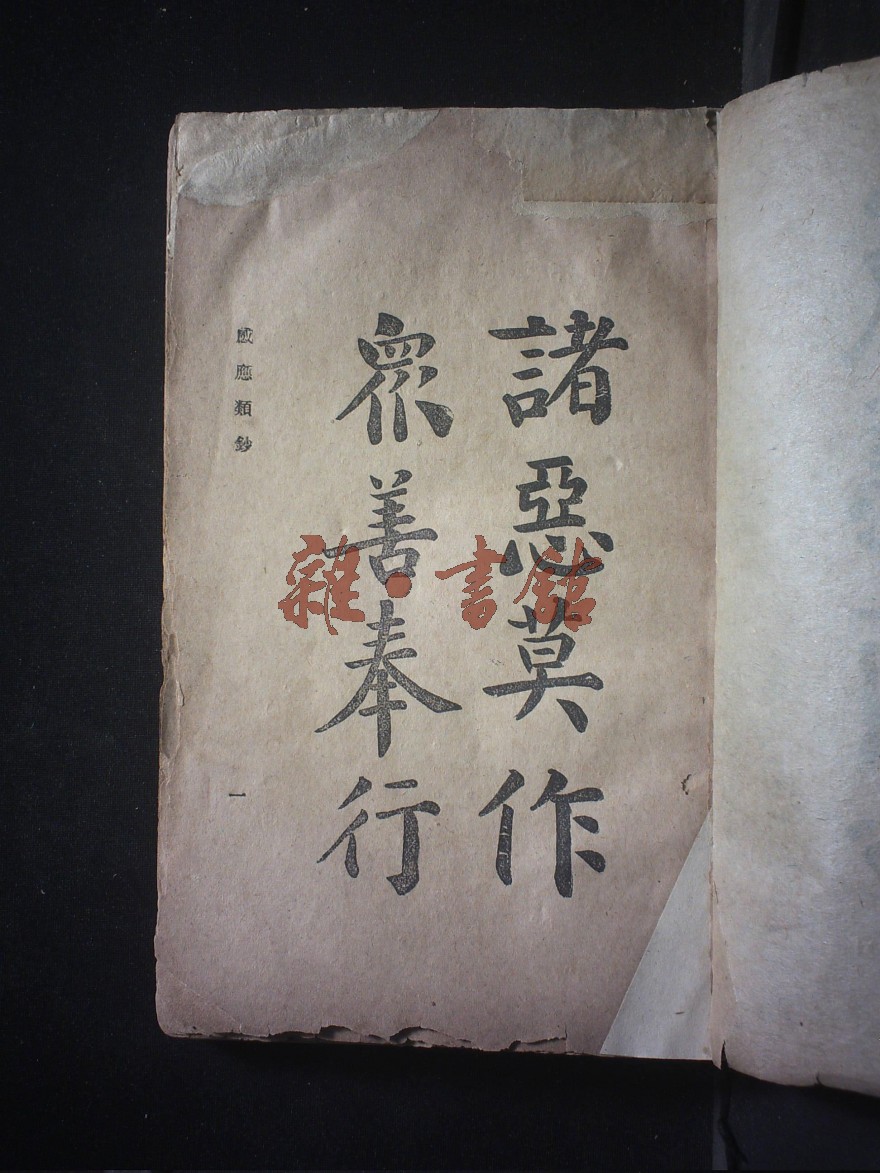 諸惡莫作
眾善奉行
感應類鈔
一
雜·書館